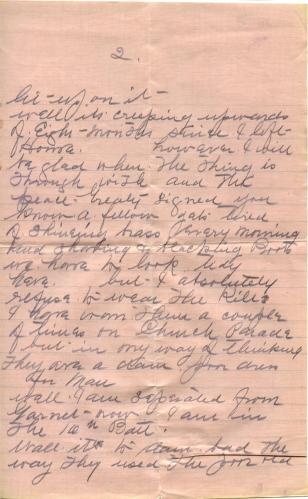 2.
let-up on it-
well its creeping upwards
of Eight-months since I left-
Home. however I will
be glad when The Thing is
Through with and The
Peace-treaty signed you
know a fellow gets tired
of shineing brass Every morning
and shooting & blacking Boots
we have to look tidy
here. but I absolutely
refuse to wear The Kilts
I have worn Them a couple
of times on Church Parade
but in my way of thinking
They are a dam poor
for Man
well I am seperated from
Garnet-now I am in
The Batt.
well its to dam bad the
way They used The poor old